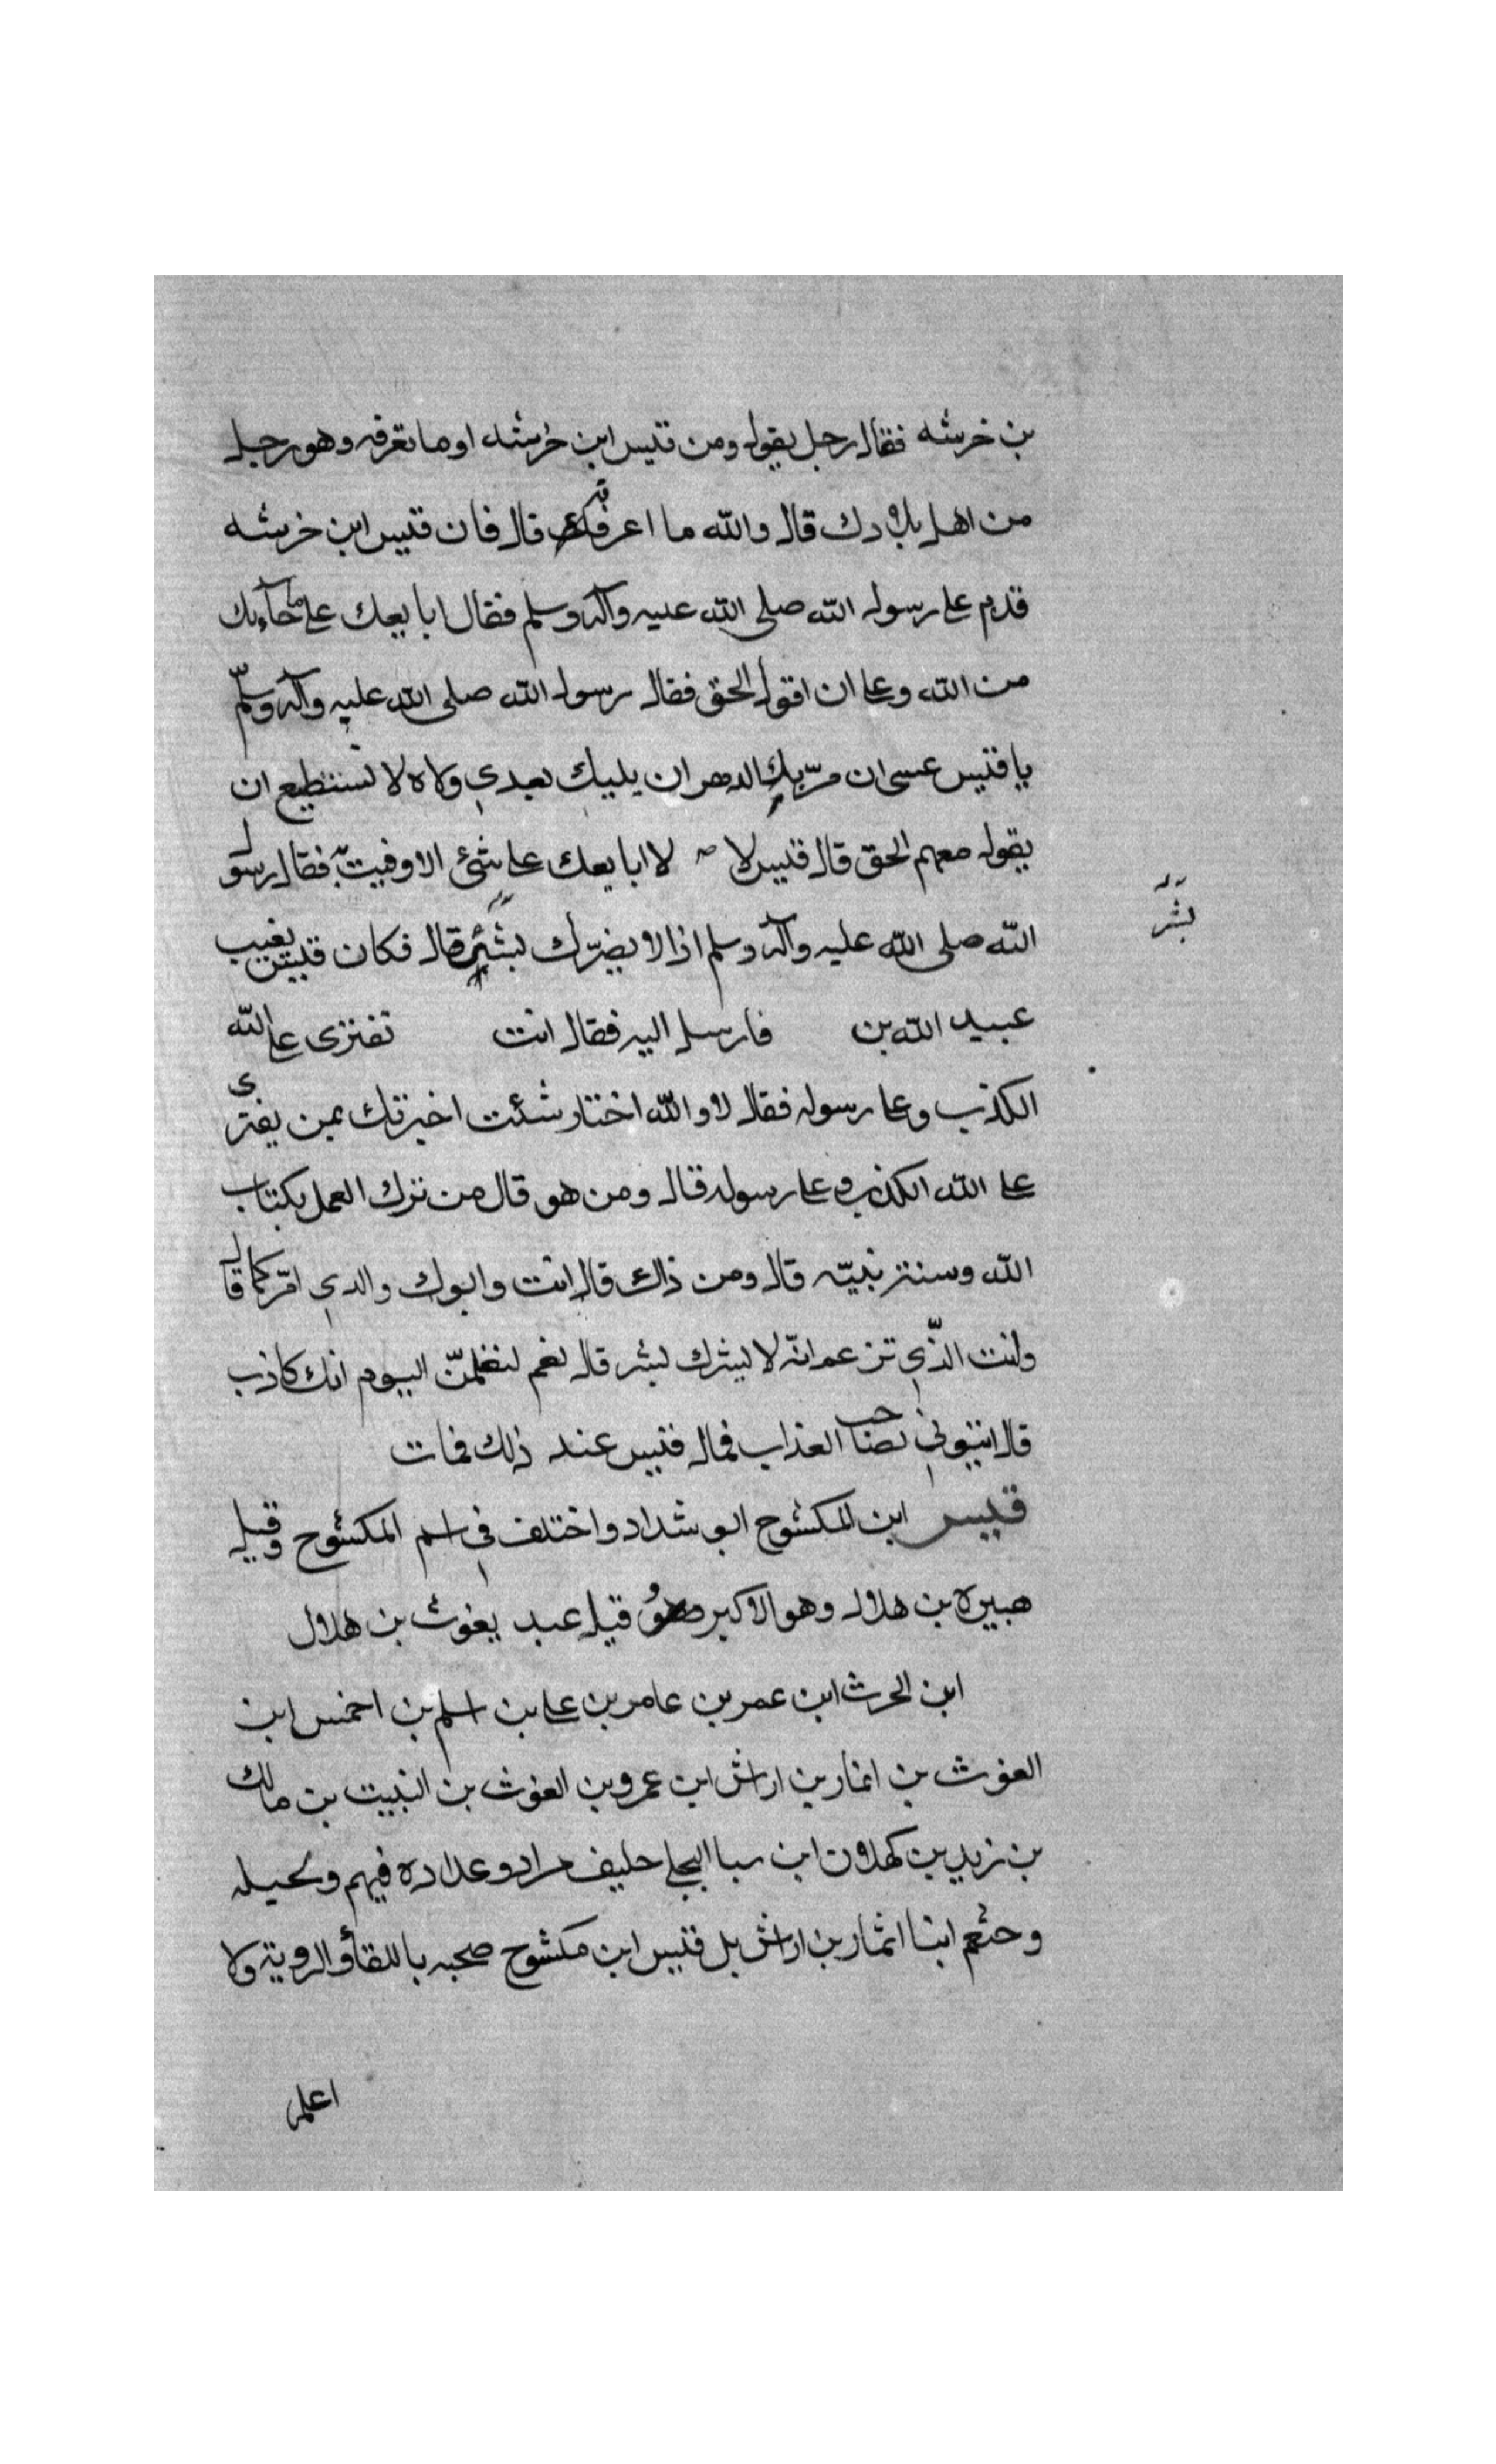 بن خرشه فقال رجل يقول ومن قيس ابن خرشه اوما تعرفه وهو رجل
من اهل بلادك قال والله ما اعرفه قال فان قيس ابن خرشه
قدم على رسول الله صلى الله عليه وآله وسلم فقال ابايعك على ما جآءك
من الله وعلى ان اقول الحق فقال رسول الله صلى الله عليه وآله وسلّم
يا قيس عسى ان مرّ بك الدهر ان يليك بعدي ولاه لا تستطيع ان
يقول معهم الحق قال قيس لا لا ابايعك على شئ الا وفيت به فقال رسول
الله صلى الله عليه وآله وسلم اذا لا يضرّك بشر قال فكان قيس يعيب
بشر
عبيد الله بن فارسل اليه فقال انت تفترى على الله
الكذب وعلى رسوله فقال لا والله اختار شئت اخبرتك بمن يفترى
على الله الكذب وعلى رسوله قال ومن هو قال من ترك العمل بكتاب
الله وسنة نبيّه قال ومن ذاك قال انت وابوك والدي امّركما قال
وانت الذّي تزعم انّه لا يشرك بشر قال نعم لتعلمنّ اليوم انك كاذب
قال ائتوني بصاحب العذاب فمال قيس عند ذلك فمات
قيس ابن المكشوح ابو شداد واختلف في اسم المكشوح وقيل
هبيرة بن هلال وهو الاكبر وقيل عبد يغوث بن هلال
ابن الحرث ابن عمر بن عامر بن على بن اسلم بن احمس ابن
الغوث بن انمار بن اراش ابن عمرو بن الغوث بن النبيت بن مالك
بن زيد بن كهلان ابن سبا البجلى حليف مراد وعداده فيهم وبجيله
وخثعم ابنا انمار بن اراش بل قيس ابن مكشوح صحبه باللقآ والروية ولا
اعلم